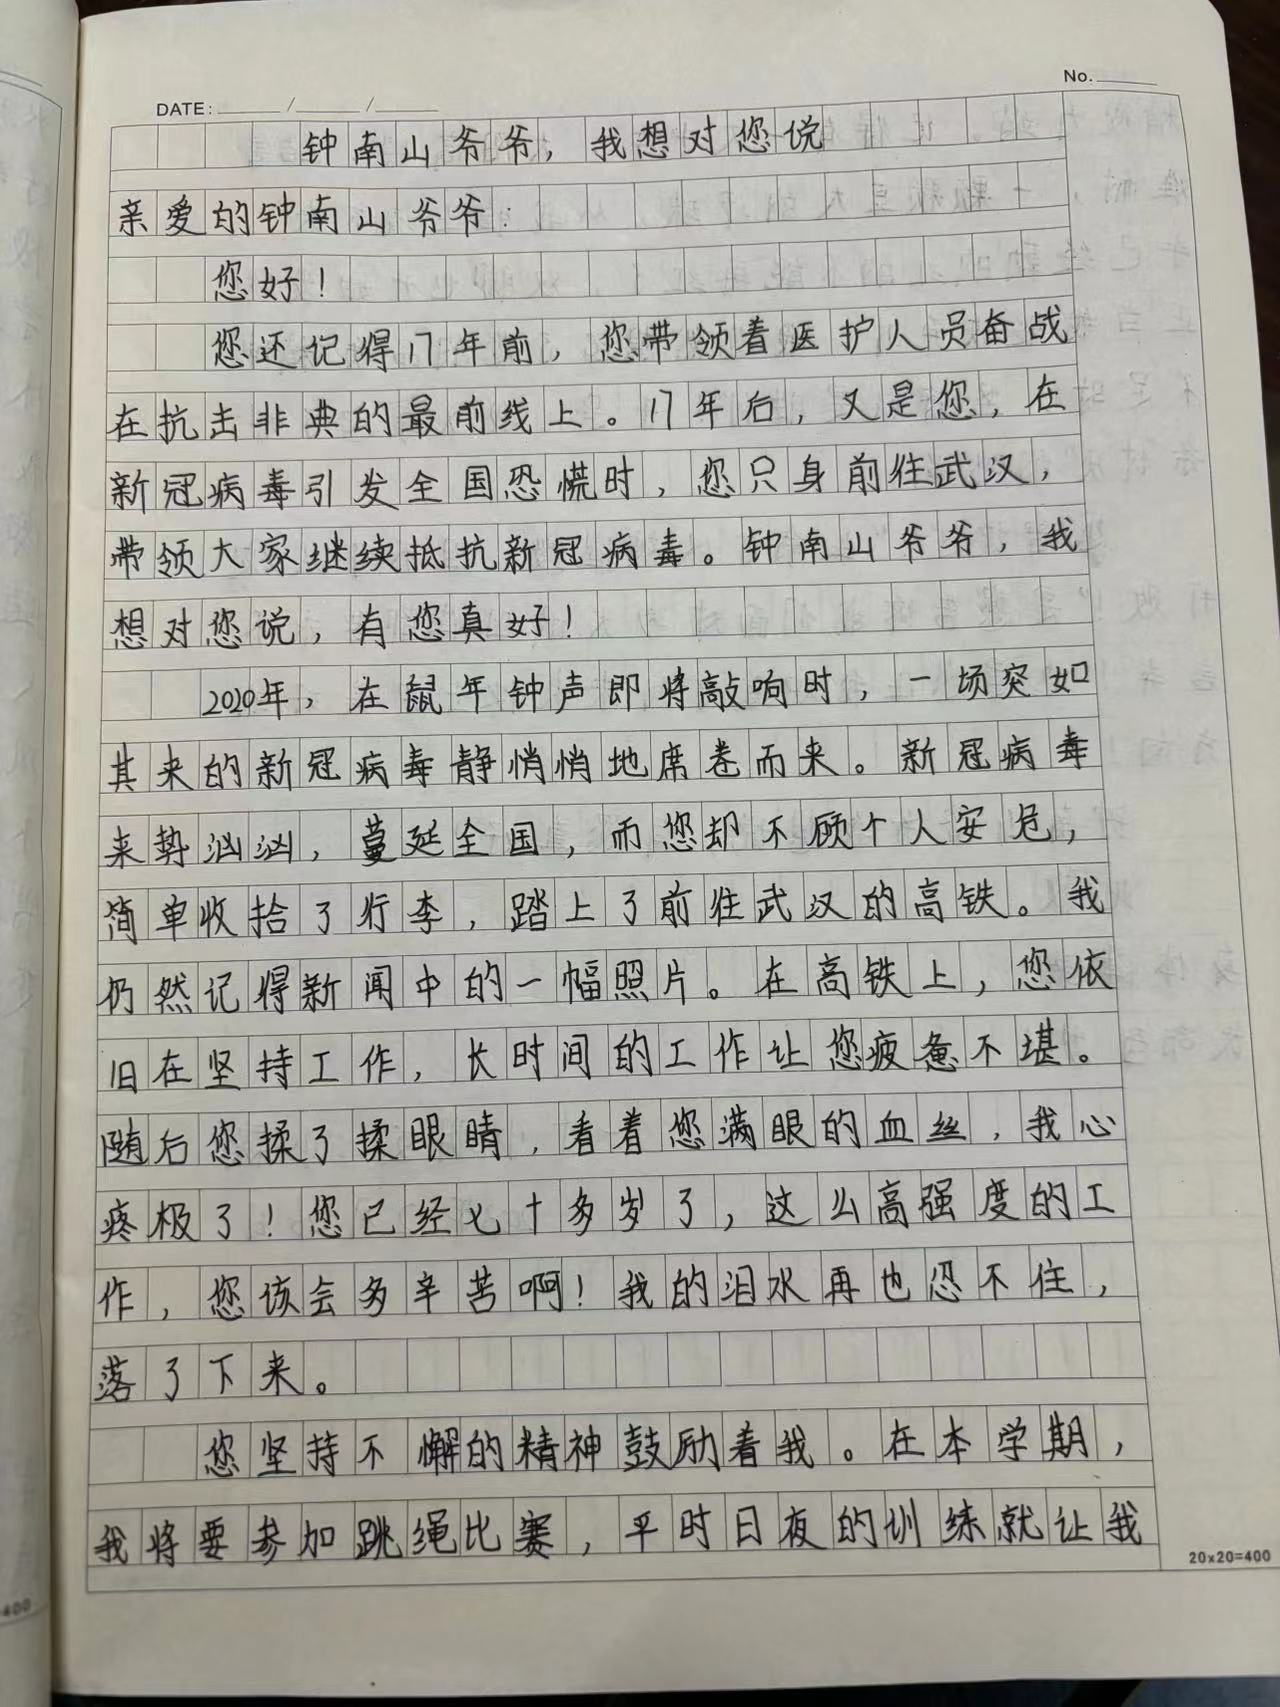 No.
DATE: / /
钟南山爷爷，我想对您说
亲爱的钟南山爷爷：
您好！
您还记得17年前，您带领着医护人员奋战
在抗击非典的最前线上。17年后，又是您，在
新冠病毒引发全国恐慌时，您只身前往武汉，
带领大家继续抵抗新冠病毒。钟南山爷爷，我
想对您说，有您真好！
2020年，在鼠年钟声即将敲响时，一场突如
其来的新冠病毒静悄悄地席卷而来。新冠病毒
来势汹汹，蔓延全国，而您却不顾个人安危，
简单收拾了行李，踏上了前往武汉的高铁。我
仍然记得新闻中的一幅照片。在高铁上，您依
旧在坚持工作，长时间的工作让您疲惫不堪。
随后您揉了揉眼睛，看着您满眼的血丝，我心
疼极了！您已经七十多岁了，这么高强度的工
作，您该会多辛苦啊！我的泪水再也忍不住，
落了下来。
您坚持不懈的精神鼓励着我。在本学期，
我将要参加跳绳比赛，平时日夜的训练就让我
20×20=400